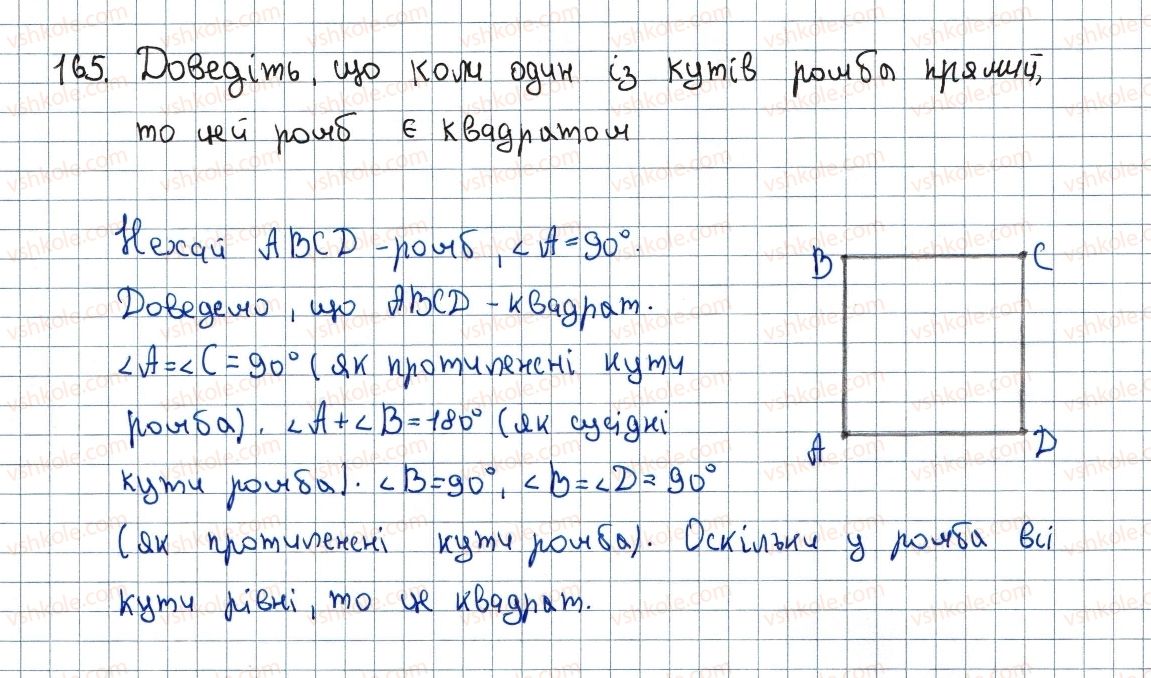 165. Доведіть, що коли один із кутів ромба прямий,
то цей ромб є квадратом
Нехай ABCD - ромб, ∠A = 90°.
Доведемо, що ABCD - квадрат.
∠A = ∠C = 90° (як протилежні кути
ромба). ∠A + ∠B = 180° (як сусідні
кути ромба). ∠B = 90°, ∠B = ∠D = 90°
(як протилежні кути ромба). Оскільки у ромба всі
кути рівні, то це квадрат.
B
C
A
D
vshkole.com